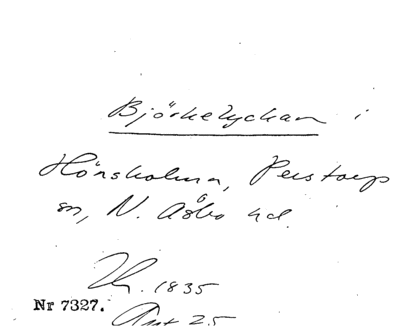 Björkelyckan i
Hönsholma, Perstorps
sn, N. Åsbo hd.
1835
Nr 7327.
25